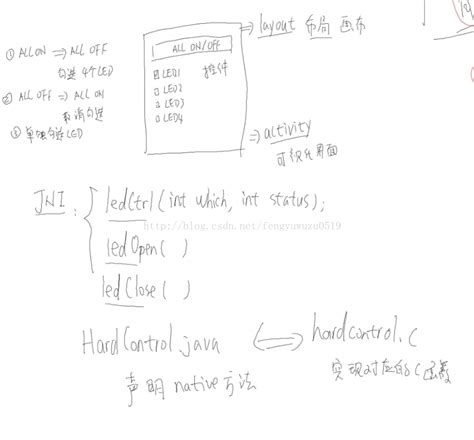 ① ALL ON ⇒ ALL OFF
勾选 4个LED
② ALL OFF ⇒ ALL ON
取消勾选
③ 单独勾选LED
ALL ON/OFF
LED1 控件
LED2
LED3
LED4
⇒ layout 布局 画布
⇒ activity
可视化界面
JNI:
ledCtrl(int which, int status);
http://blog.csdn.net/fengyuwuzu0519
ledOpen( )
ledClose( )
HardControl.java ⇔ hardcontrol.c
声明 native方法
实现对应的C函数